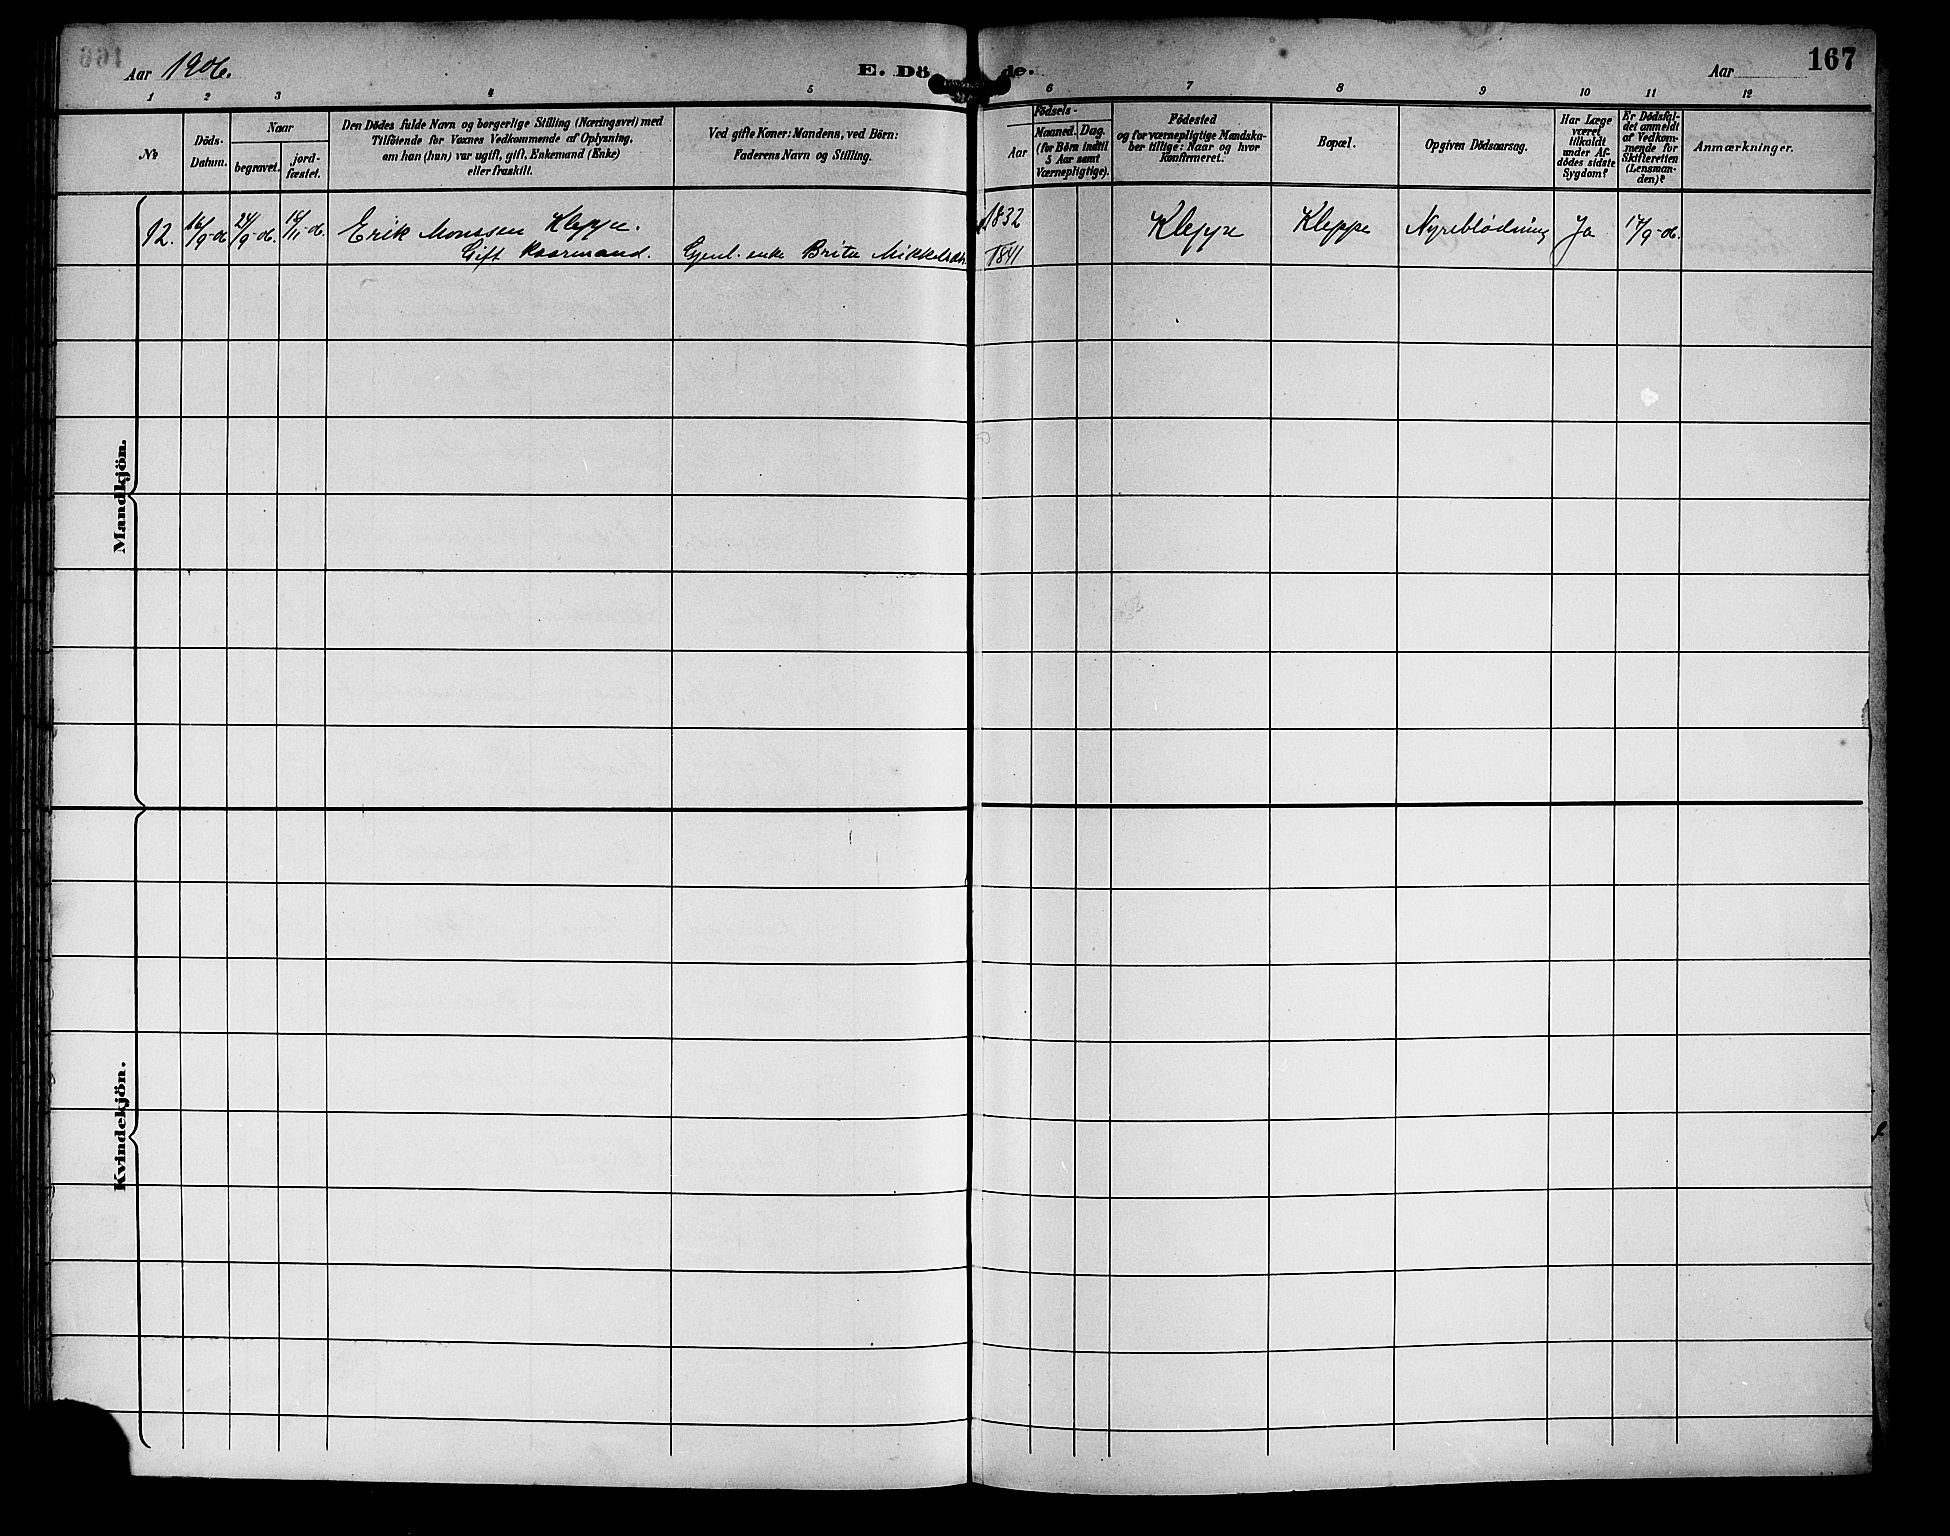 Aar 1906.
E. Dö de.
Aar
167
1 2 3 4 5 6 7 8 9 10 11 12
№
Döds-
Datum.
Naar
begravet.
jord-
fæstet.
Den Dödes fulde Navn og borgerlige Stilling (Næringsvei) med
Tilföiende for Voxnes Vedkommende af Oplysning,
om han (hun) var ugift, gift, Enkemand (Enke)
eller fraskilt.
Ved gifte Koner: Mandens, ved Börn:
Faderens Navn og Stilling.
Födsels-
Aar
Maaned. Dag.
(for Börn indtil
5 Aar samt
Værnepligtige).
Födested
og for værnepligtige Mandska-
ber tillige: Naar og hvor
Konfirmeret.
Bopæl.
Opgiven Dödsaarsag.
Har Læge
været
tilkaldt
under Af-
dödes sidste
Sygdom?
Er Dödsfal-
det anmeldt
af Vedkom-
mende for
Skifteretten
(Lensman-
den)?
Anmærkninger.
Mandkjön.
12. 16/9-06 24/9-06. 14/11-06. Erik Monssen Kleppe. 1832 Kleppe Kleppe Nyreblödning Ja 17/9-06.
Gift Kaarmand. Gjenl. enke Brita Mikkelsdtr. 1841
Kvindekjön.